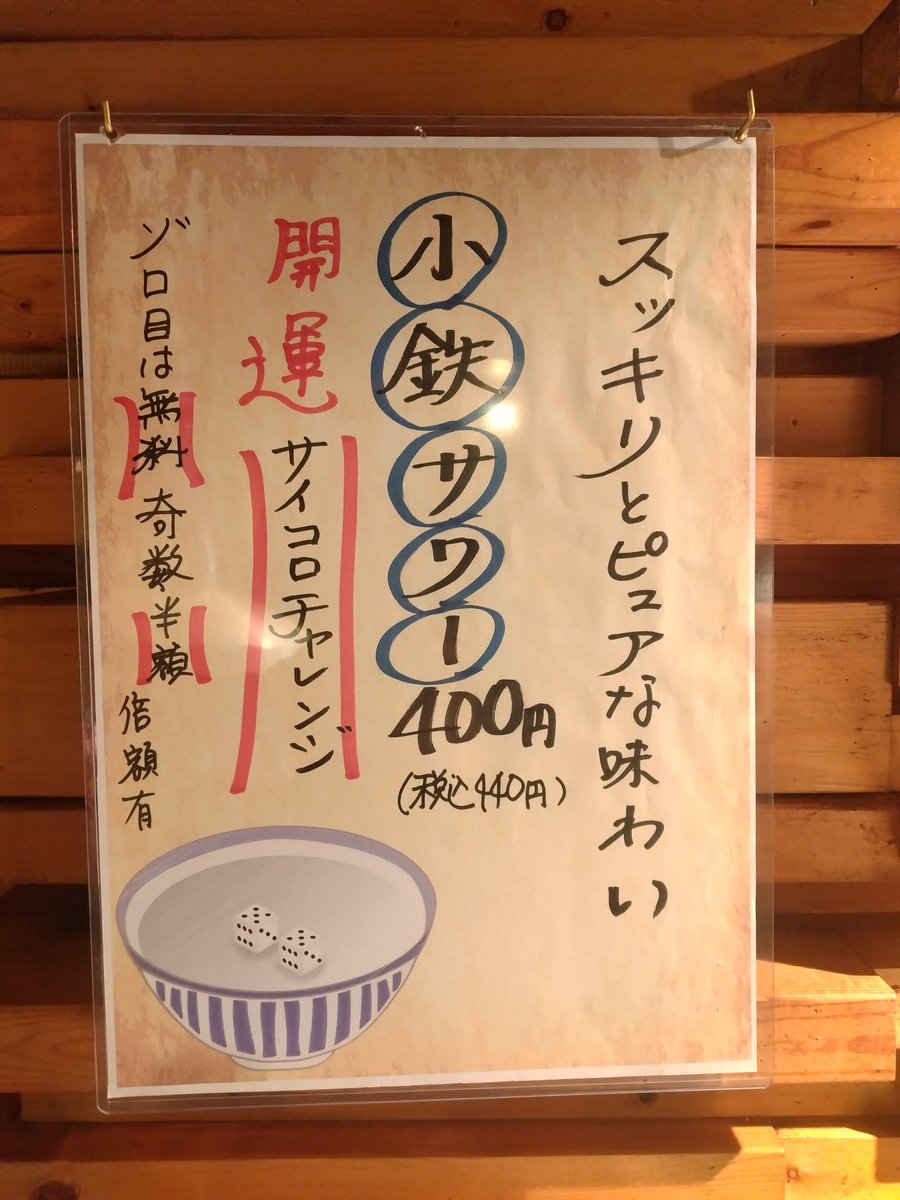 スッキリとピュアな味わい
小鉄サワー
400円
(税込440円)
開運サイコロチャレンジ
ゾロ目は無料 奇数半額 倍額有